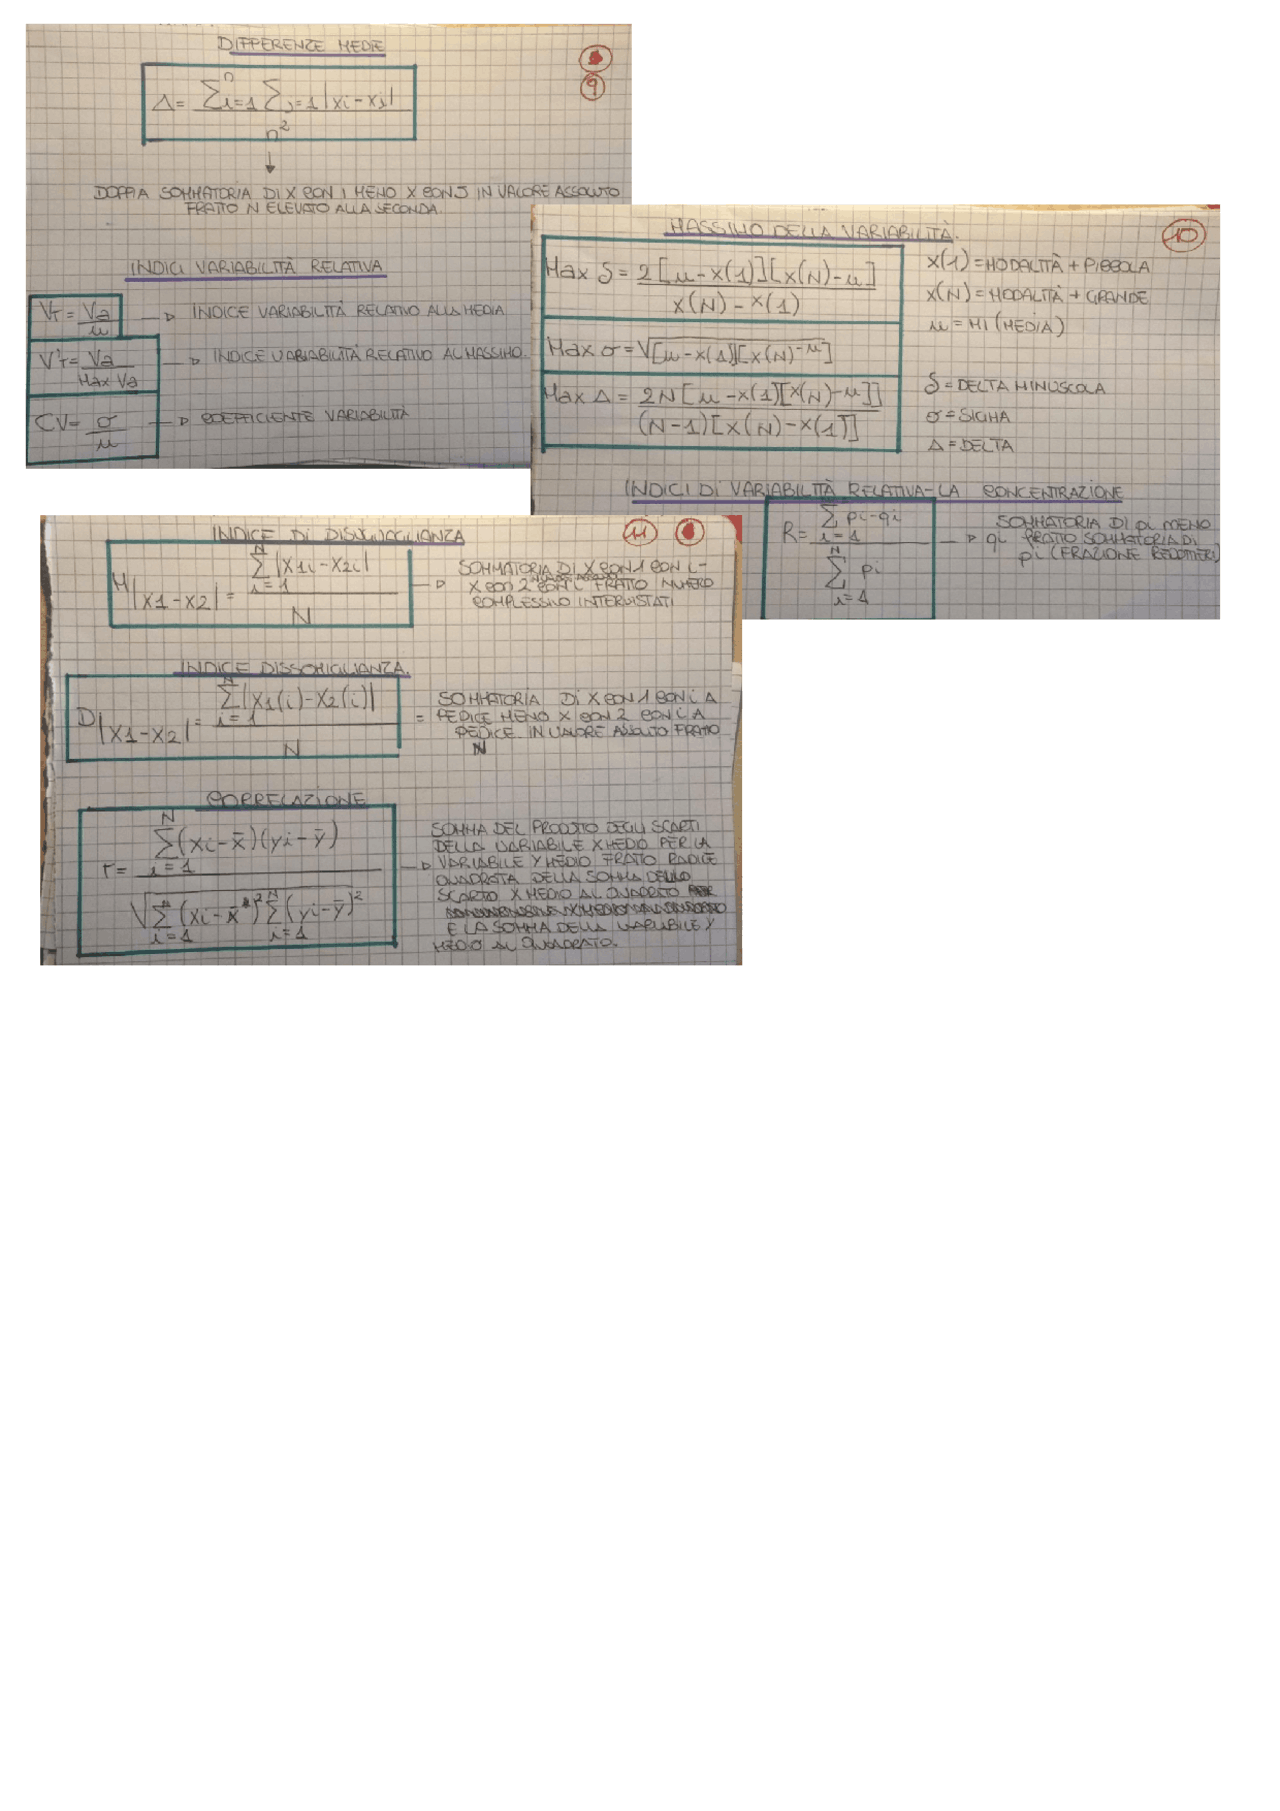 DIFFERENZE MEDIE
9
Δ = ∑ⁿi=1 ∑j=1 |xi-xj|
n²
DOPPIA SOMMATORIA DI X CON I MENO X CON J IN VALORE ASSOLUTO
FRATTO N ELEVATO ALLA SECONDA.
INDICI VARIABILITÀ RELATIVA
Vr = Va
μ
INDICE VARIABILITÀ RELATIVO ALLA MEDIA
V'r = Va
Max Va
INDICE VARIABILITÀ RELATIVO AL MASSIMO.
CV = σ
μ
COEFFICIENTE VARIABILITÀ
MASSIMO DELLA VARIABILITÀ.
10
Max δ = 2[μ-x(1)][x(N)-μ]
x(N)-x(1)
Max σ = √[μ-x(1)][x(N)-μ]
Max Δ = 2N[μ-x(1][x(N)-μ]]
(N-1)[x(N)-x(1)]
x(1) = MODALITÀ + PICCOLA
x(N) = MODALITÀ + GRANDE
μ = MI (MEDIA)
δ = DELTA MINUSCOLA
σ = SIGMA
Δ = DELTA
INDICI DI VARIABILITÀ RELATIVA-LA CONCENTRAZIONE
R = ∑ pi-qi
i=1
N
∑ pi
i=1
SOMMATORIA DI pi MENO
qi FRATTO SOMMATORIA DI
pi (FRAZIONE REDDITIERI)
INDICE DI DISUGUAGLIANZA
11
N
M|X1-X2| = ∑|X1i-X2i|
i=1
N
SOMMATORIA DI X CON 1 CON i -
X CON 2 CON i FRATTO NUMERO
COMPLESSIVO INTERVISTATI
INDICE DISSOMIGLIANZA.
N
D|X1-X2| = ∑|X1(i)-X2(i)|
i=1
N
= SOMMATORIA DI X CON 1 CON i A
PEDICE MENO X CON 2 CON i A
PEDICE IN VALORE ASSOLUTO FRATTO
N
CORRELAZIONE
N
r = ∑(xi-x̄)(yi-ȳ)
i=1
√∑(xi-x̄)² ∑(yi-ȳ)²
i=1 i=1
SOMMA DEL PRODOTTO DEGLI SCARTI
DELLA VARIABILE X MEDIO PER LA
VARIABILE Y MEDIO FRATTO RADICE
QUADRATA DELLA SOMMA DELLO
SCARTO X MEDIO AL QUADRATO
E LA SOMMA DELLA VARIABILE Y
MEDIO AL QUADRATO.